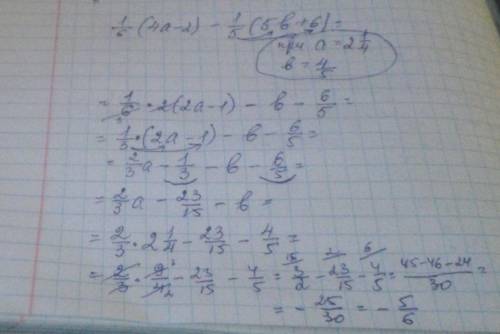 1/6 (4a-2) - 1/5 (5в+6) =
при a = 2 1/4
в = 4/5
= 1/6 · 2(2a-1) - в - 6/5 =
= 1/3 · (2a-1) - в - 6/5 =
= 2/3 a - 1/3 - в - 6/5 =
= 2/3 a - 23/15 - в =
= 2/3 · 2 1/4 - 23/15 - 4/5 =
= 2/3 · 9/4 - 23/15 - 4/5 = 3/2 - 23/15 - 4/5 = 45-46-24/30 =
= - 25/30 = - 5/6